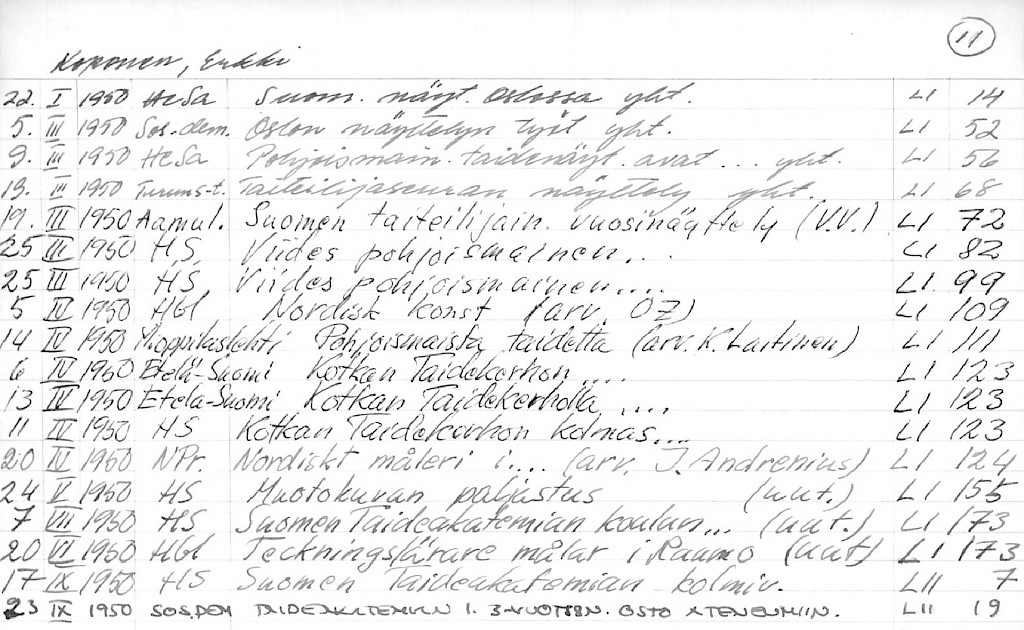 11
Koponen, Erkki
22. I 1950 HeSa Suom. näyt. Oslossa yht. LI 14
5. III 1950 Sos.-dem. Oslon näyttelyn työt yht. LI 52
9. III 1950 HeSa Pohjoismain. taidenäyt. avat... yht. LI 56
19. III 1950 Turuns-t. Taiteilijaseuran näyttely yht. LI 68
19. III 1950 Aamul. Suomen taiteilijain. vuosinäyttely (V.V.) LI 72
25 III 1950 HS, Viides pohjoismainen... LI 82
25 III 1950 HS, Viides pohjoismainen.... LI 99
5 IV 1950 Hbl Nordisk konst (arv. ÖZ) LI 109
14 IV 1950 Ylioppilaslehti Pohjoismaista taidetta (arv. K. Laitinen) LI 111
6 IV 1950 Etelä-Suomi Kotkan Taidekerhon.... LI 123
13 IV 1950 Etelä-Suomi Kotkan Taidekerholla .... LI 123
11 IV 1950 HS Kotkan Taidekerhon kolmas.... LI 123
20 IV 1950 NPr. Nordiskt måleri i.... (arv. J. Andrenius) LI 124
24 V 1950 HS Muotokuvan paljastus (uut.) LI 155
7 VII 1950 HS Suomen Taideakatemian koulun... (uut.) LI 173
20 VI 1950 Hbl Teckningslärare målar i Raumo (uut) LI 173
17 IX 1950 HS Suomen Taideakatemian kolmiv. LII 7
23 IX 1950 SOS.DEM TAIDEAKATEMIAN 1. 3-VUOTISN. OSTO ATENEUMIIN. LII 19